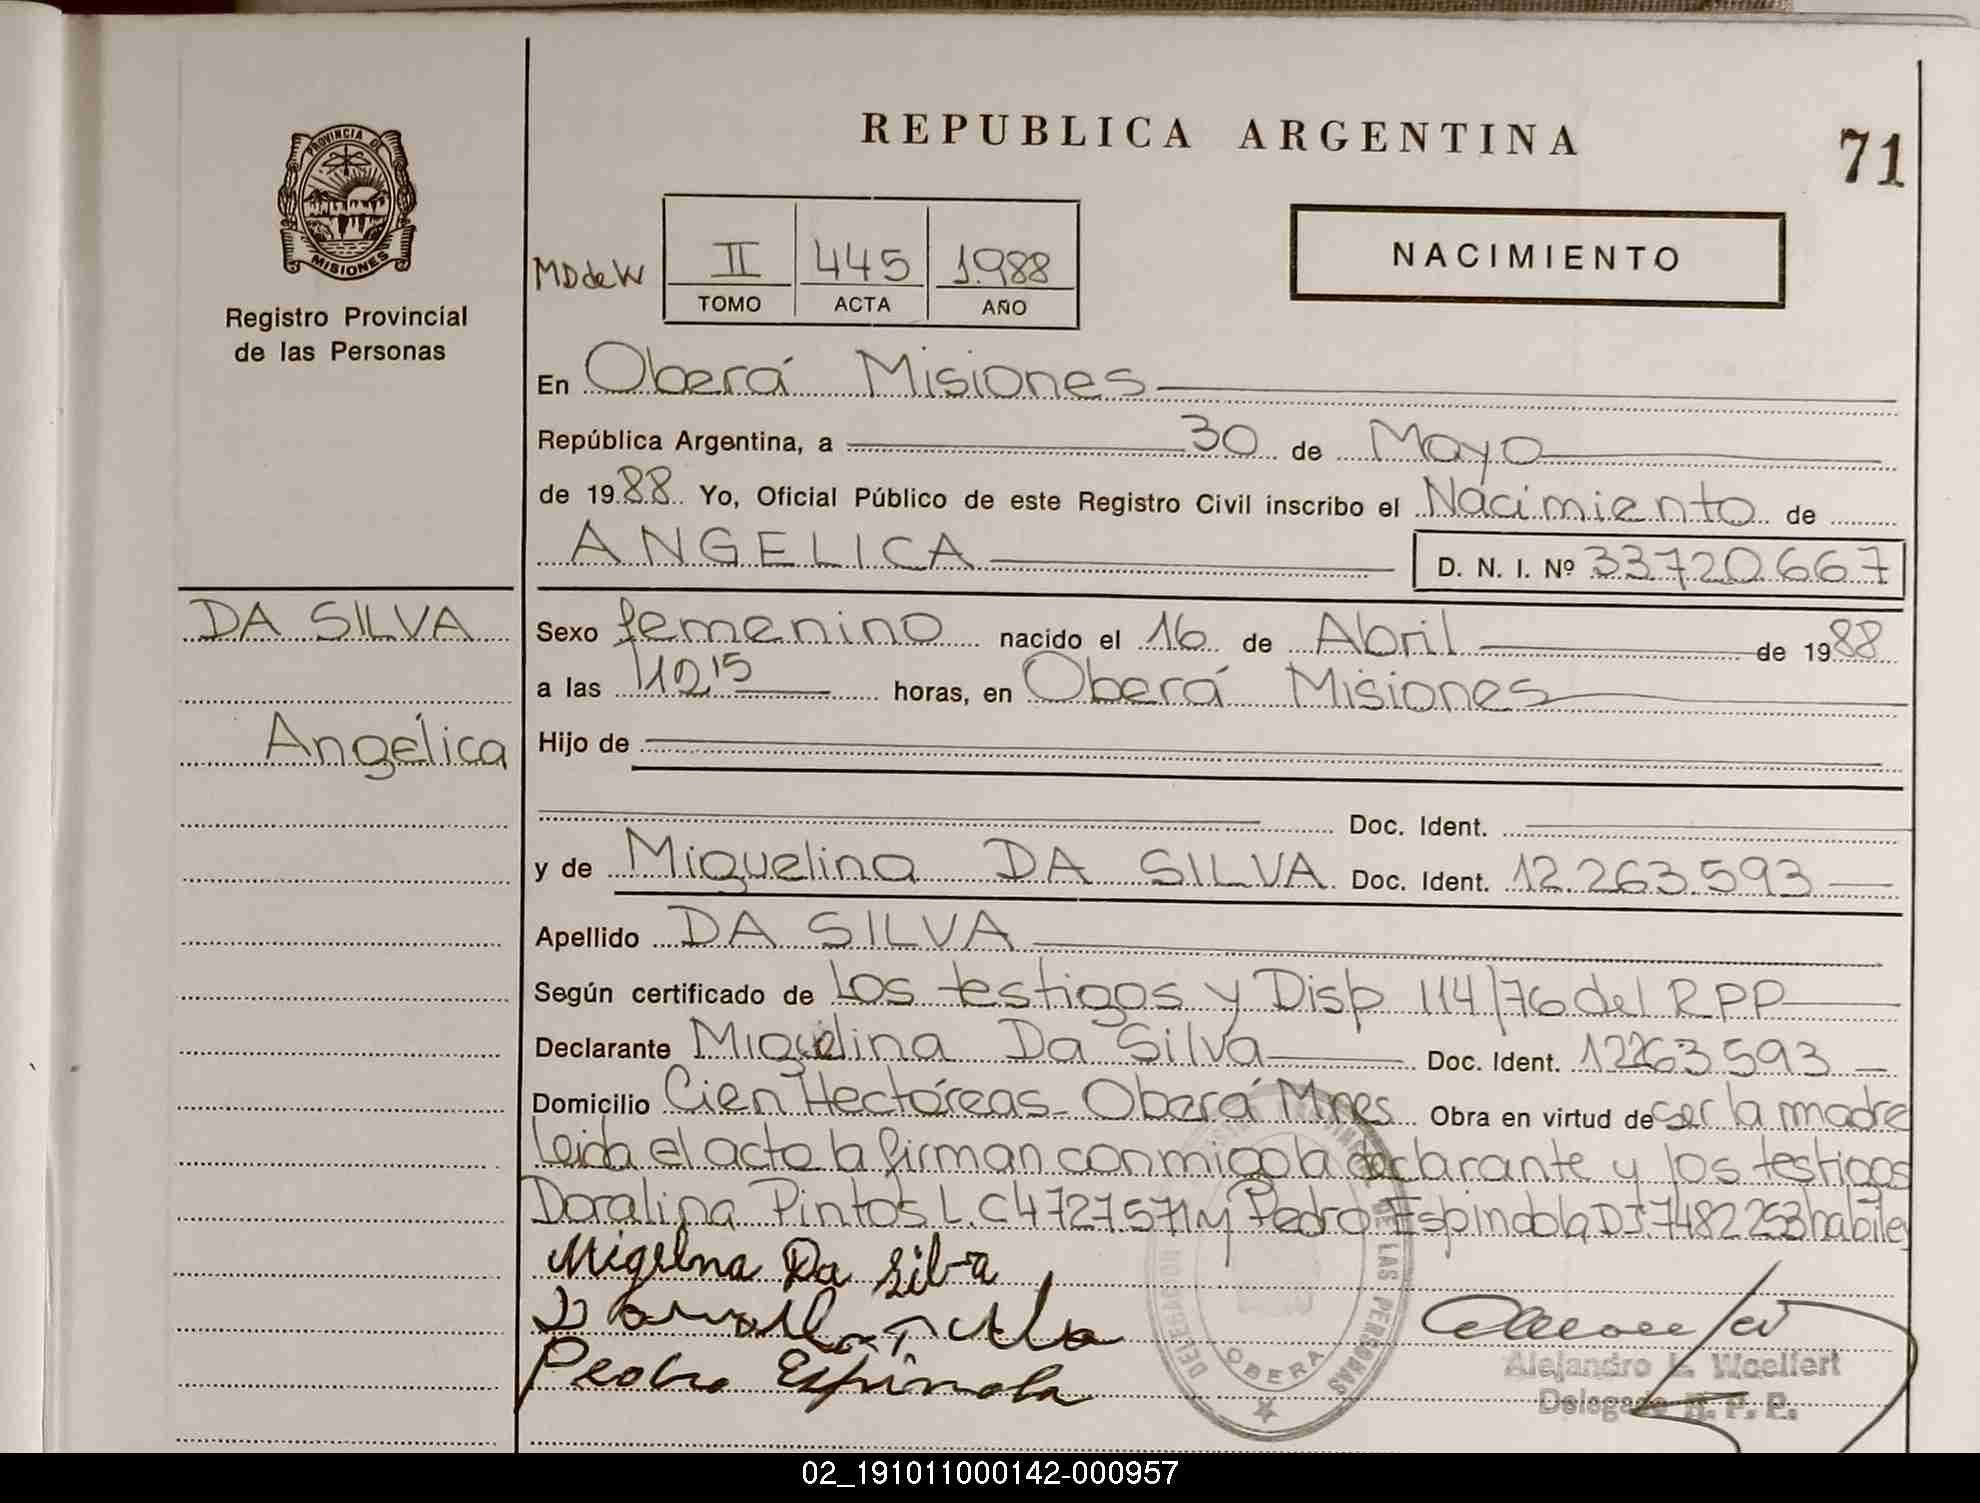 REPUBLICA ARGENTINA
71
PROVINCIA D
MISIONES
Registro Provincial
de las Personas
MDdeW
II 445 1.988
TOMO ACTA AÑO
NACIMIENTO
En Oberá Misiones
República Argentina, a 30 de Mayo
de 1988 Yo, Oficial Público de este Registro Civil inscribo el Nacimiento de
ANGELICA D. N. I. Nº 33720667
DA SILVA
Angélica
Sexo femenino nacido el 16 de Abril de 1988
a las 10,15 horas, en Oberá Misiones
Hijo de
Doc. Ident.
y de Miguelina DA SILVA Doc. Ident. 12.263.593
Apellido DA SILVA
Según certificado de Los testigos y Disp 114/76 del R P P
Declarante Miguelina Da Silva Doc. Ident. 12263593
Domicilio Cien Hectóreas - Oberá Mnes Obra en virtud de ser la madre
Leida el acta la firman conmigo la declarante y los testigos
Doralina Pintos L.C 4727571 y Pedro Espindola DI 7482253 habiles
Migelna Da Silva
Pedro Espinola
DE LAS PERSONAS
OBERA
Alejandro L. Woelfert
Delegado R. P. P.
02_191011000142-000957